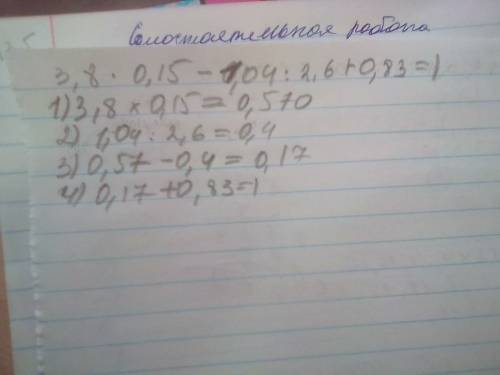 Самостоятельная работа
3,8 · 0,15 - 1,04 : 2,6 + 0,83 = 1
1) 3,8 × 0,15 = 0,570
2) 1,04 : 2,6 = 0,4
3) 0,57 - 0,4 = 0,17
4) 0,17 + 0,83 = 1